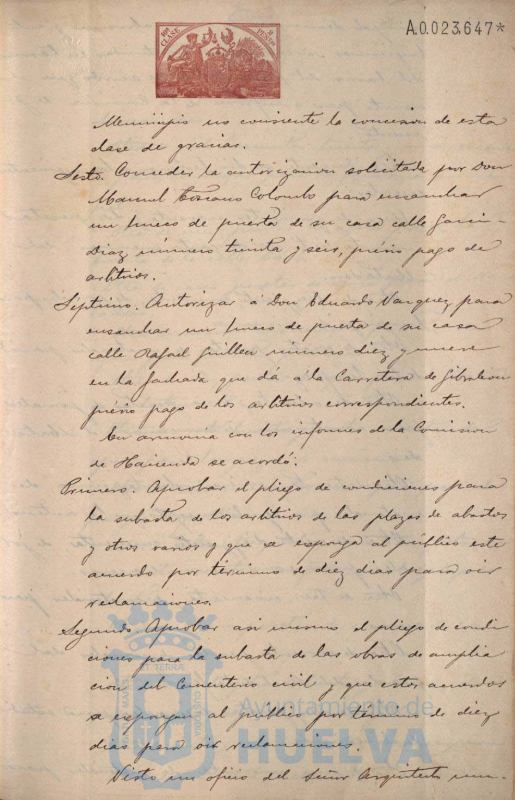 A.0.023.647*
10ª CLASE
PESETAS
Municipio no consiente la concesion de esta
clase de gracias.
Sesto. Conceder la autorizacion solicitada por Don
Manuel Toscano Colombo para ensanchar
un hueco de puerta de su casa calle Garci-
Diaz número treinta y seis, prévio pago de
arbitrios.
Séptimo. Autorizar á Don Eduardo Vazquez para
ensanchar un hueco de puerta de su casa
calle Rafael Guillen número diez y nueve
en la fachada que dá á la Carretera de Gibraleon
prévio pago de los arbitrios correspondientes.
En armonia con los informes de la Comision
de Hacienda se acordó.
Primero. Aprobar el pliego de condiciones para
la subasta de los arbitrios de las plazas de abastos
y otros varios y que se esponga al público este
acuerdo por término de diez dias para oir
reclamaciones.
Segundo. Aprobar asi mismo el pliego de condi
ciones para la subasta de las obras de amplia
cion del Cementerio civil y que estos acuerdos
se espongan al público por término de diez
dias para oir reclamaciones.
Visto un oficio del Señor Arquitecto mu-
Ayuntamiento de
HUELVA